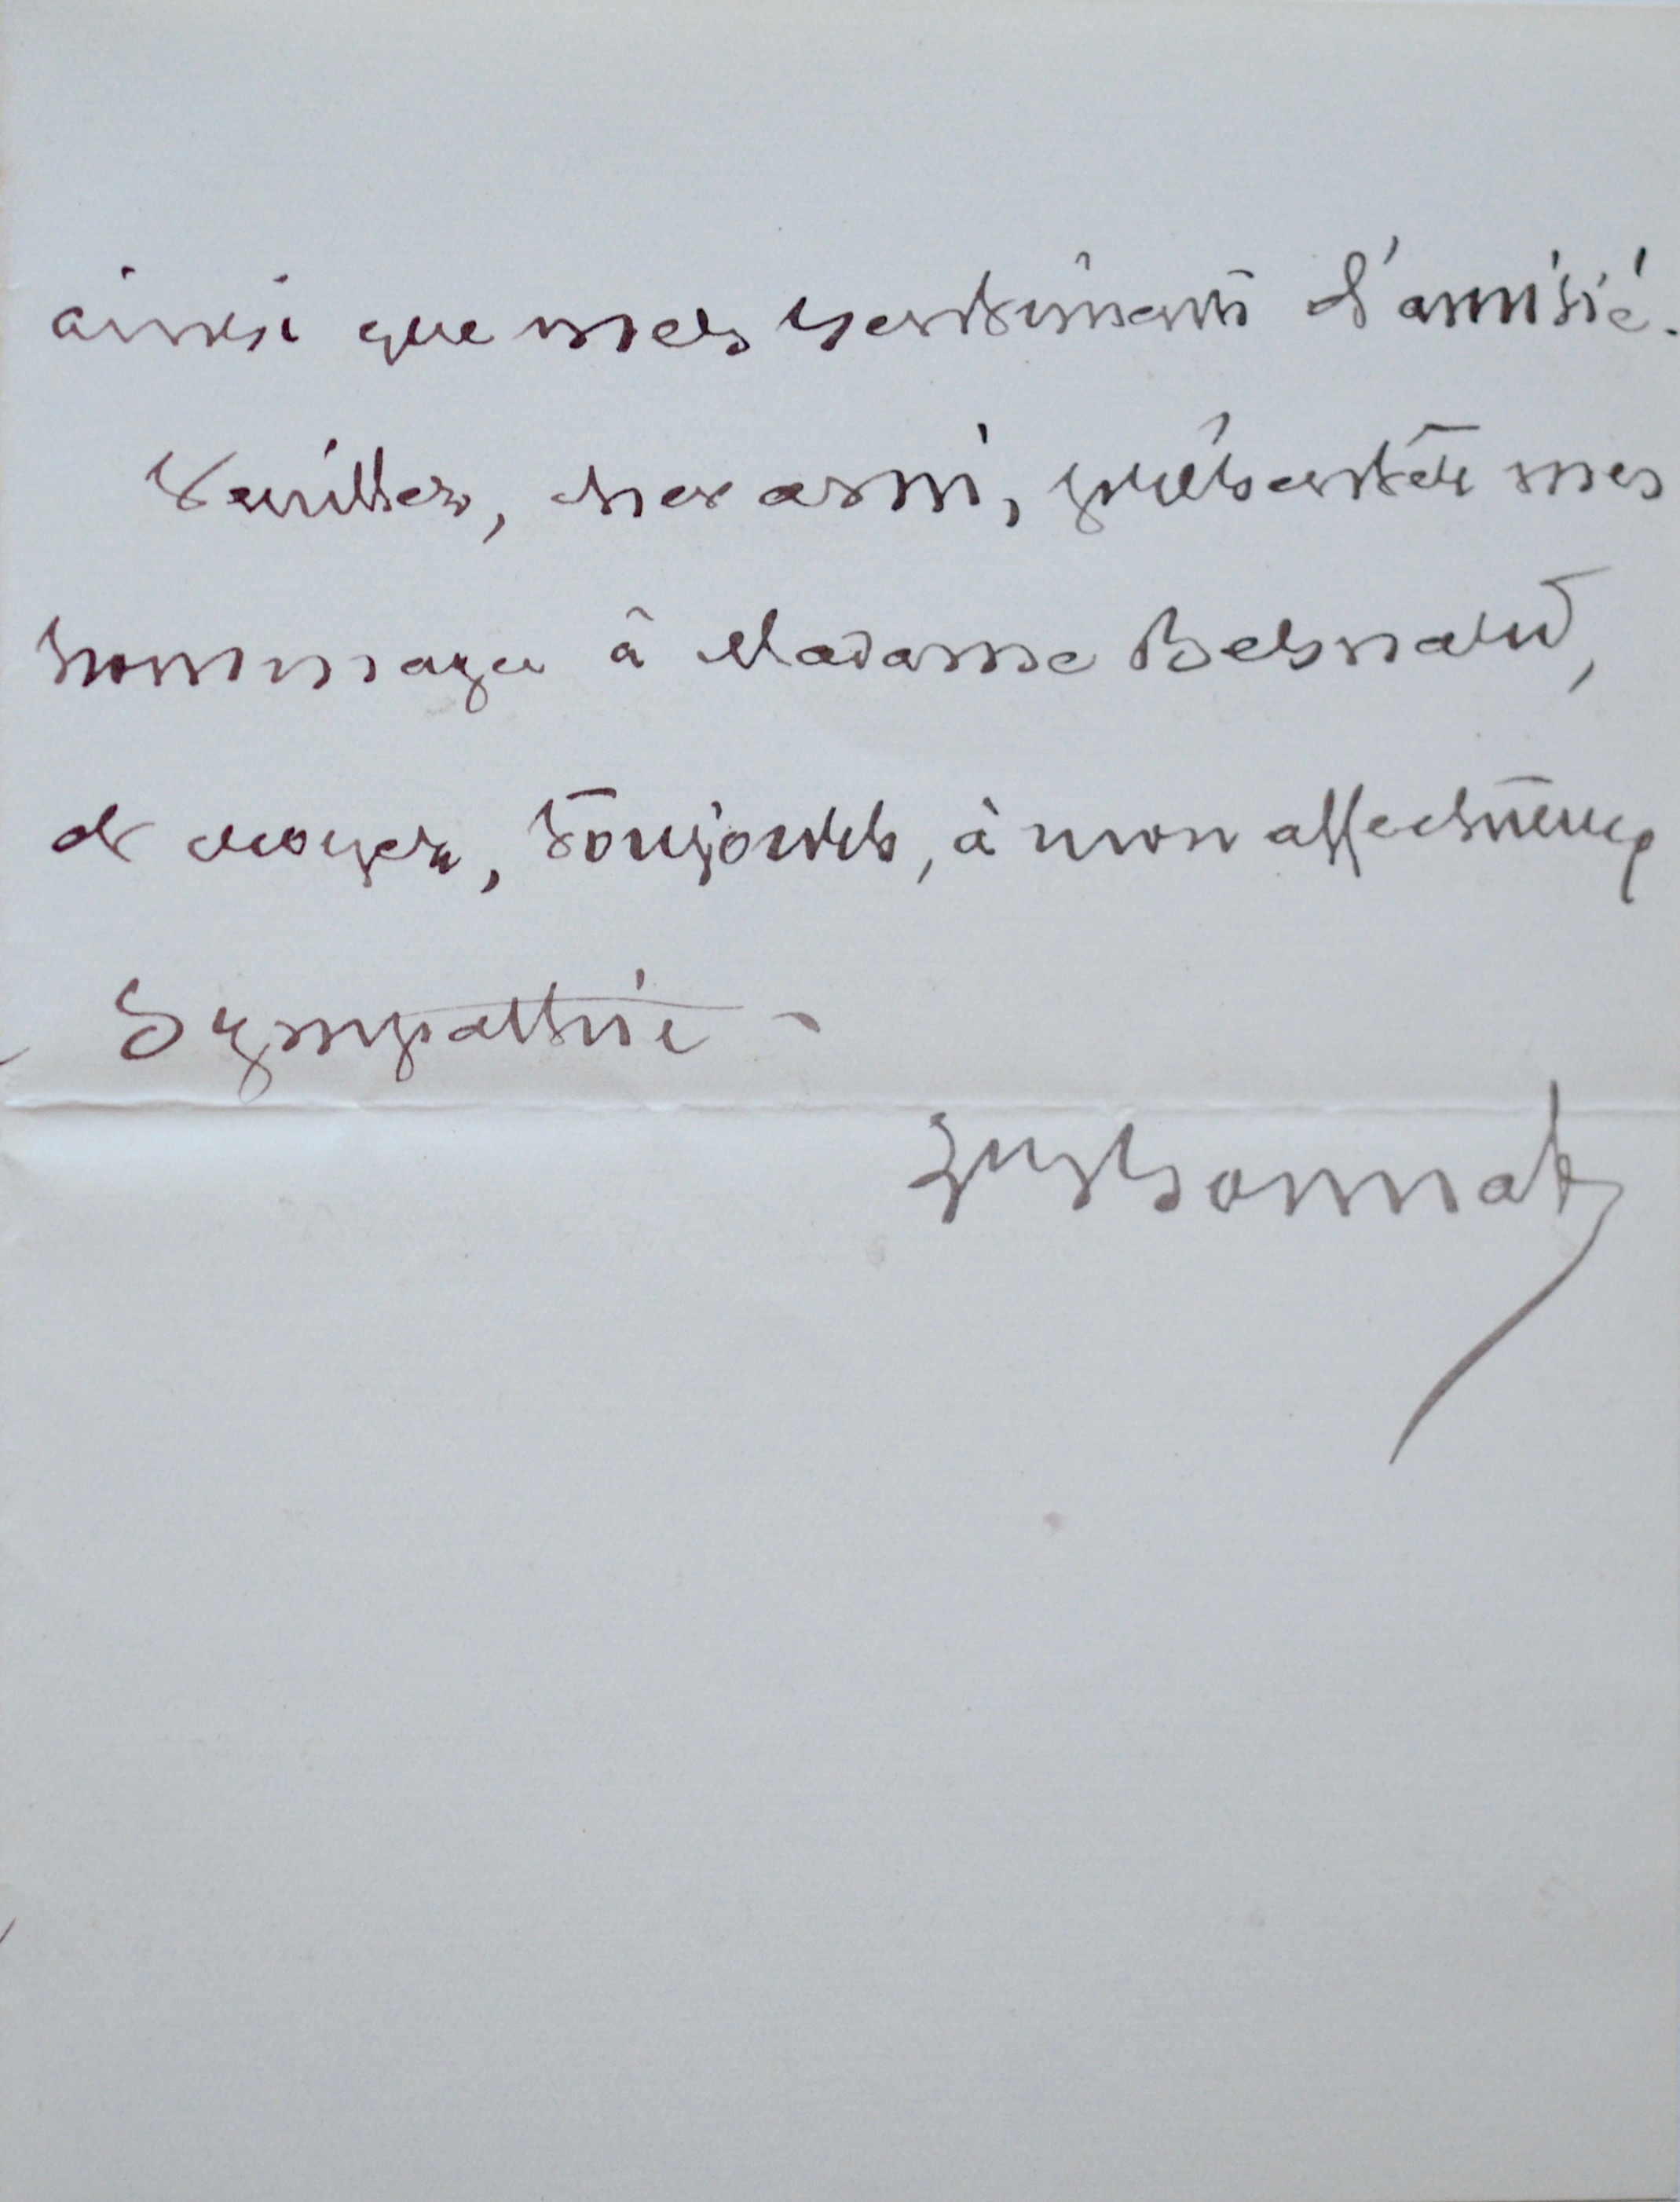 ainsi que mes sentiments d'amitié.
Veuillez, cher ami, présenter mes
hommages à Madame Besnard,
et croyez, toujours, à mon affectueuse
Sympathie -
Bonnat